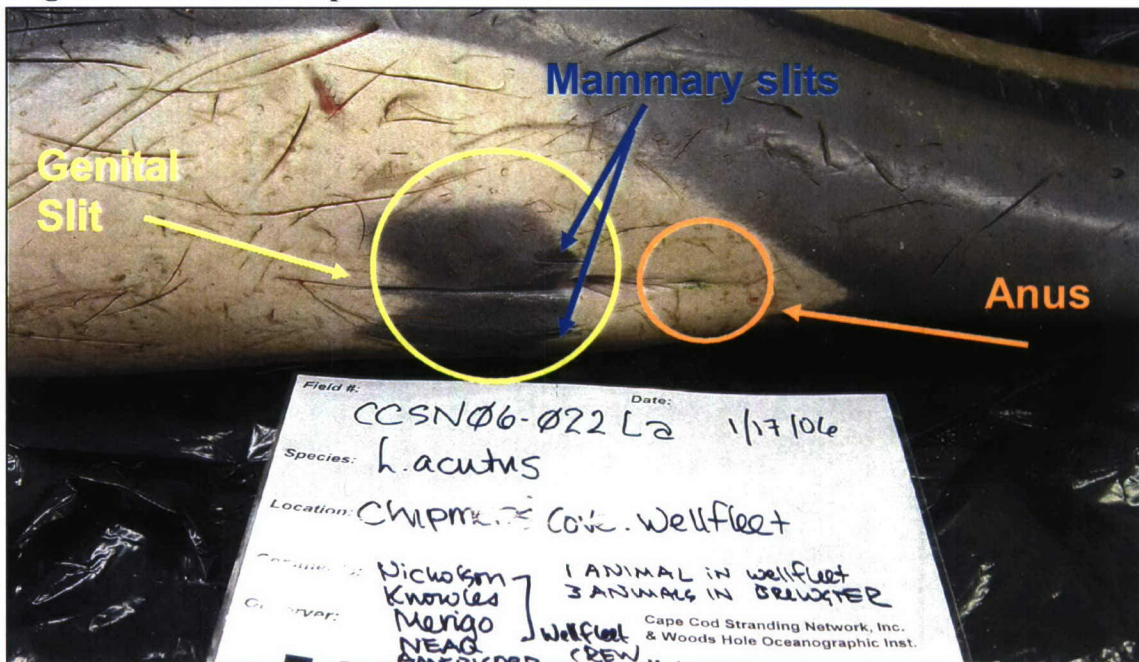 Mammary slits
Genital
Slit
Anus
Field #:
Date:
CCSN06-022 La 1/17/06
Species: L. acutus
Location: Cove. Wellfleet
Nicholson
Knowles
Merigo
NEAQ
Wellfleet
CREW
1 ANIMAL IN Wellfleet
3 ANIMALS IN BREWSTER
Cape Cod Stranding Network, Inc.
& Woods Hole Oceanographic Inst.